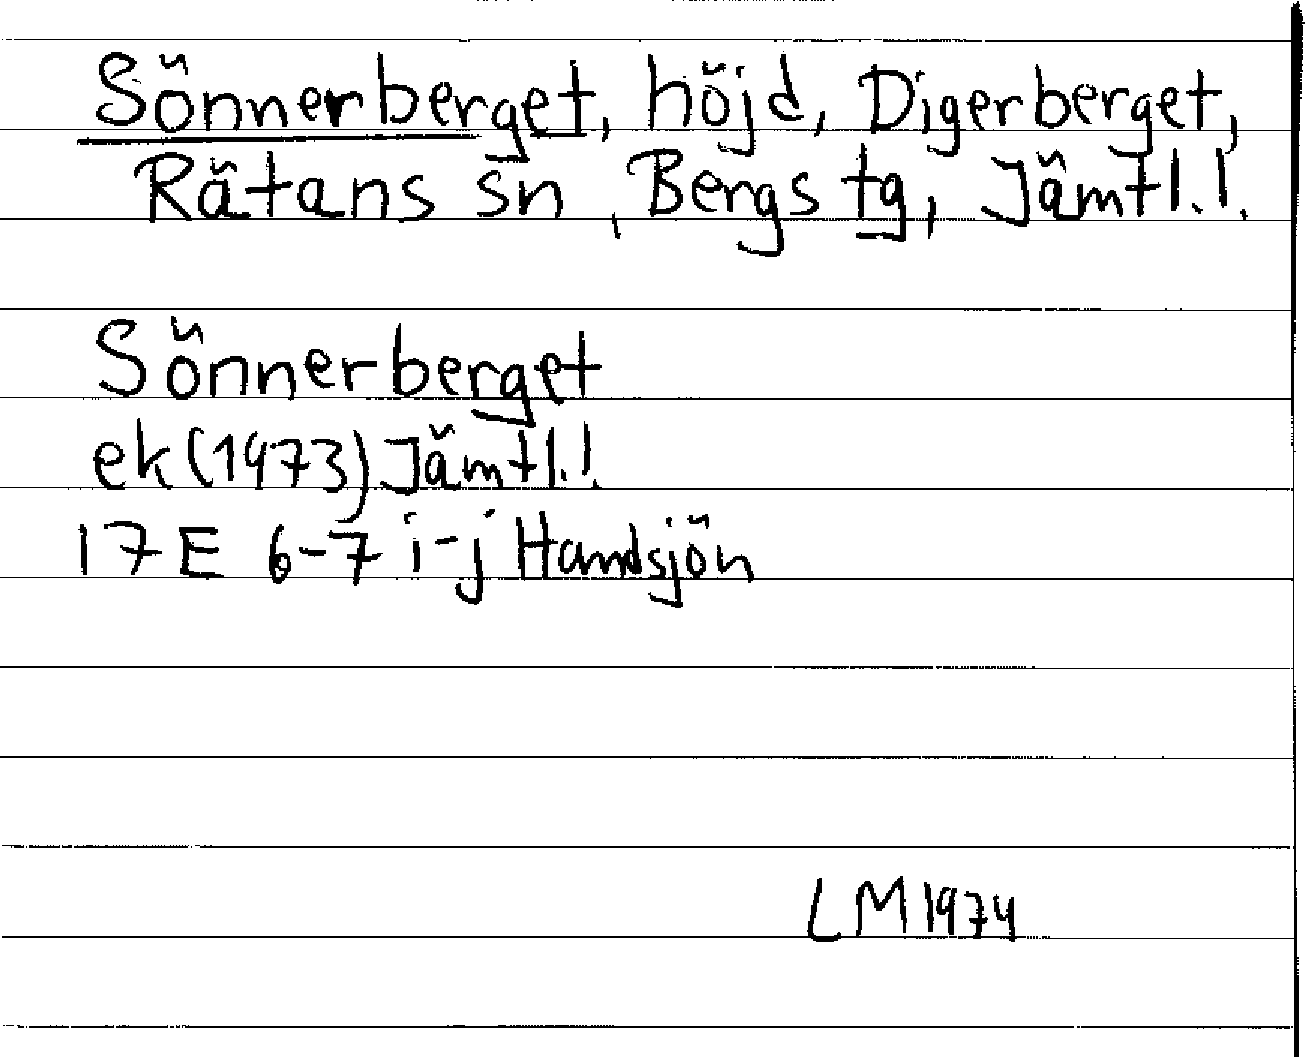 Sönnerberget, höjd, Digerberget,
Rätans sn, Bergs tg, Jämtl.l.
Sönnerberget
ek (1973) Jämtl.l.
17E 6-7 i-j Handsjön
LM 1974